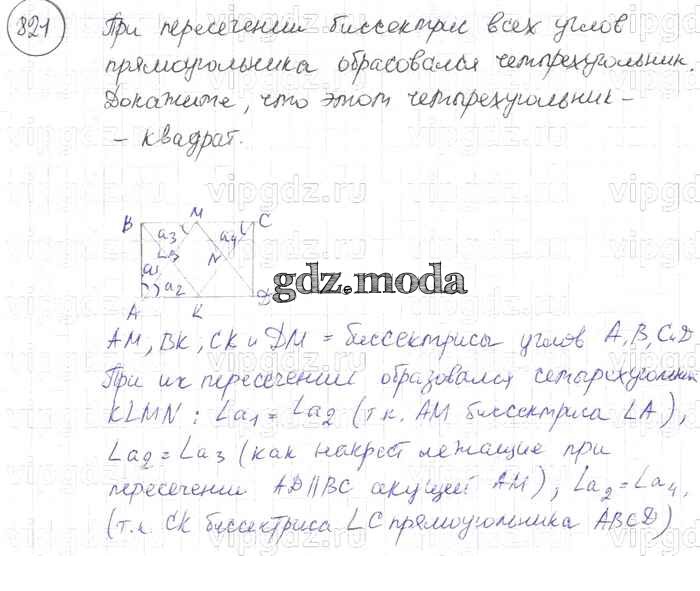 821
При пересечении биссектрис всех углов
прямоугольника образовался четырехугольник.
Докажите, что этот четырехугольник -
- квадрат.
B M C
a3 a4
L N
a1 a2
A K D
gdz.moda
AM, BK, CK и DM = биссектрисы углов A, B, C и D
При их пересечении образовался четырехугольник
KLMN : ∠a1 = ∠a2 (т.к. AM биссектриса ∠A),
∠a2 = ∠a3 (как накрест лежащие при
пересечении AD || BC секущей AM), ∠a2 = ∠a4,
(т.к. CK биссектриса ∠C прямоугольника ABCD)
vipgdz.ru